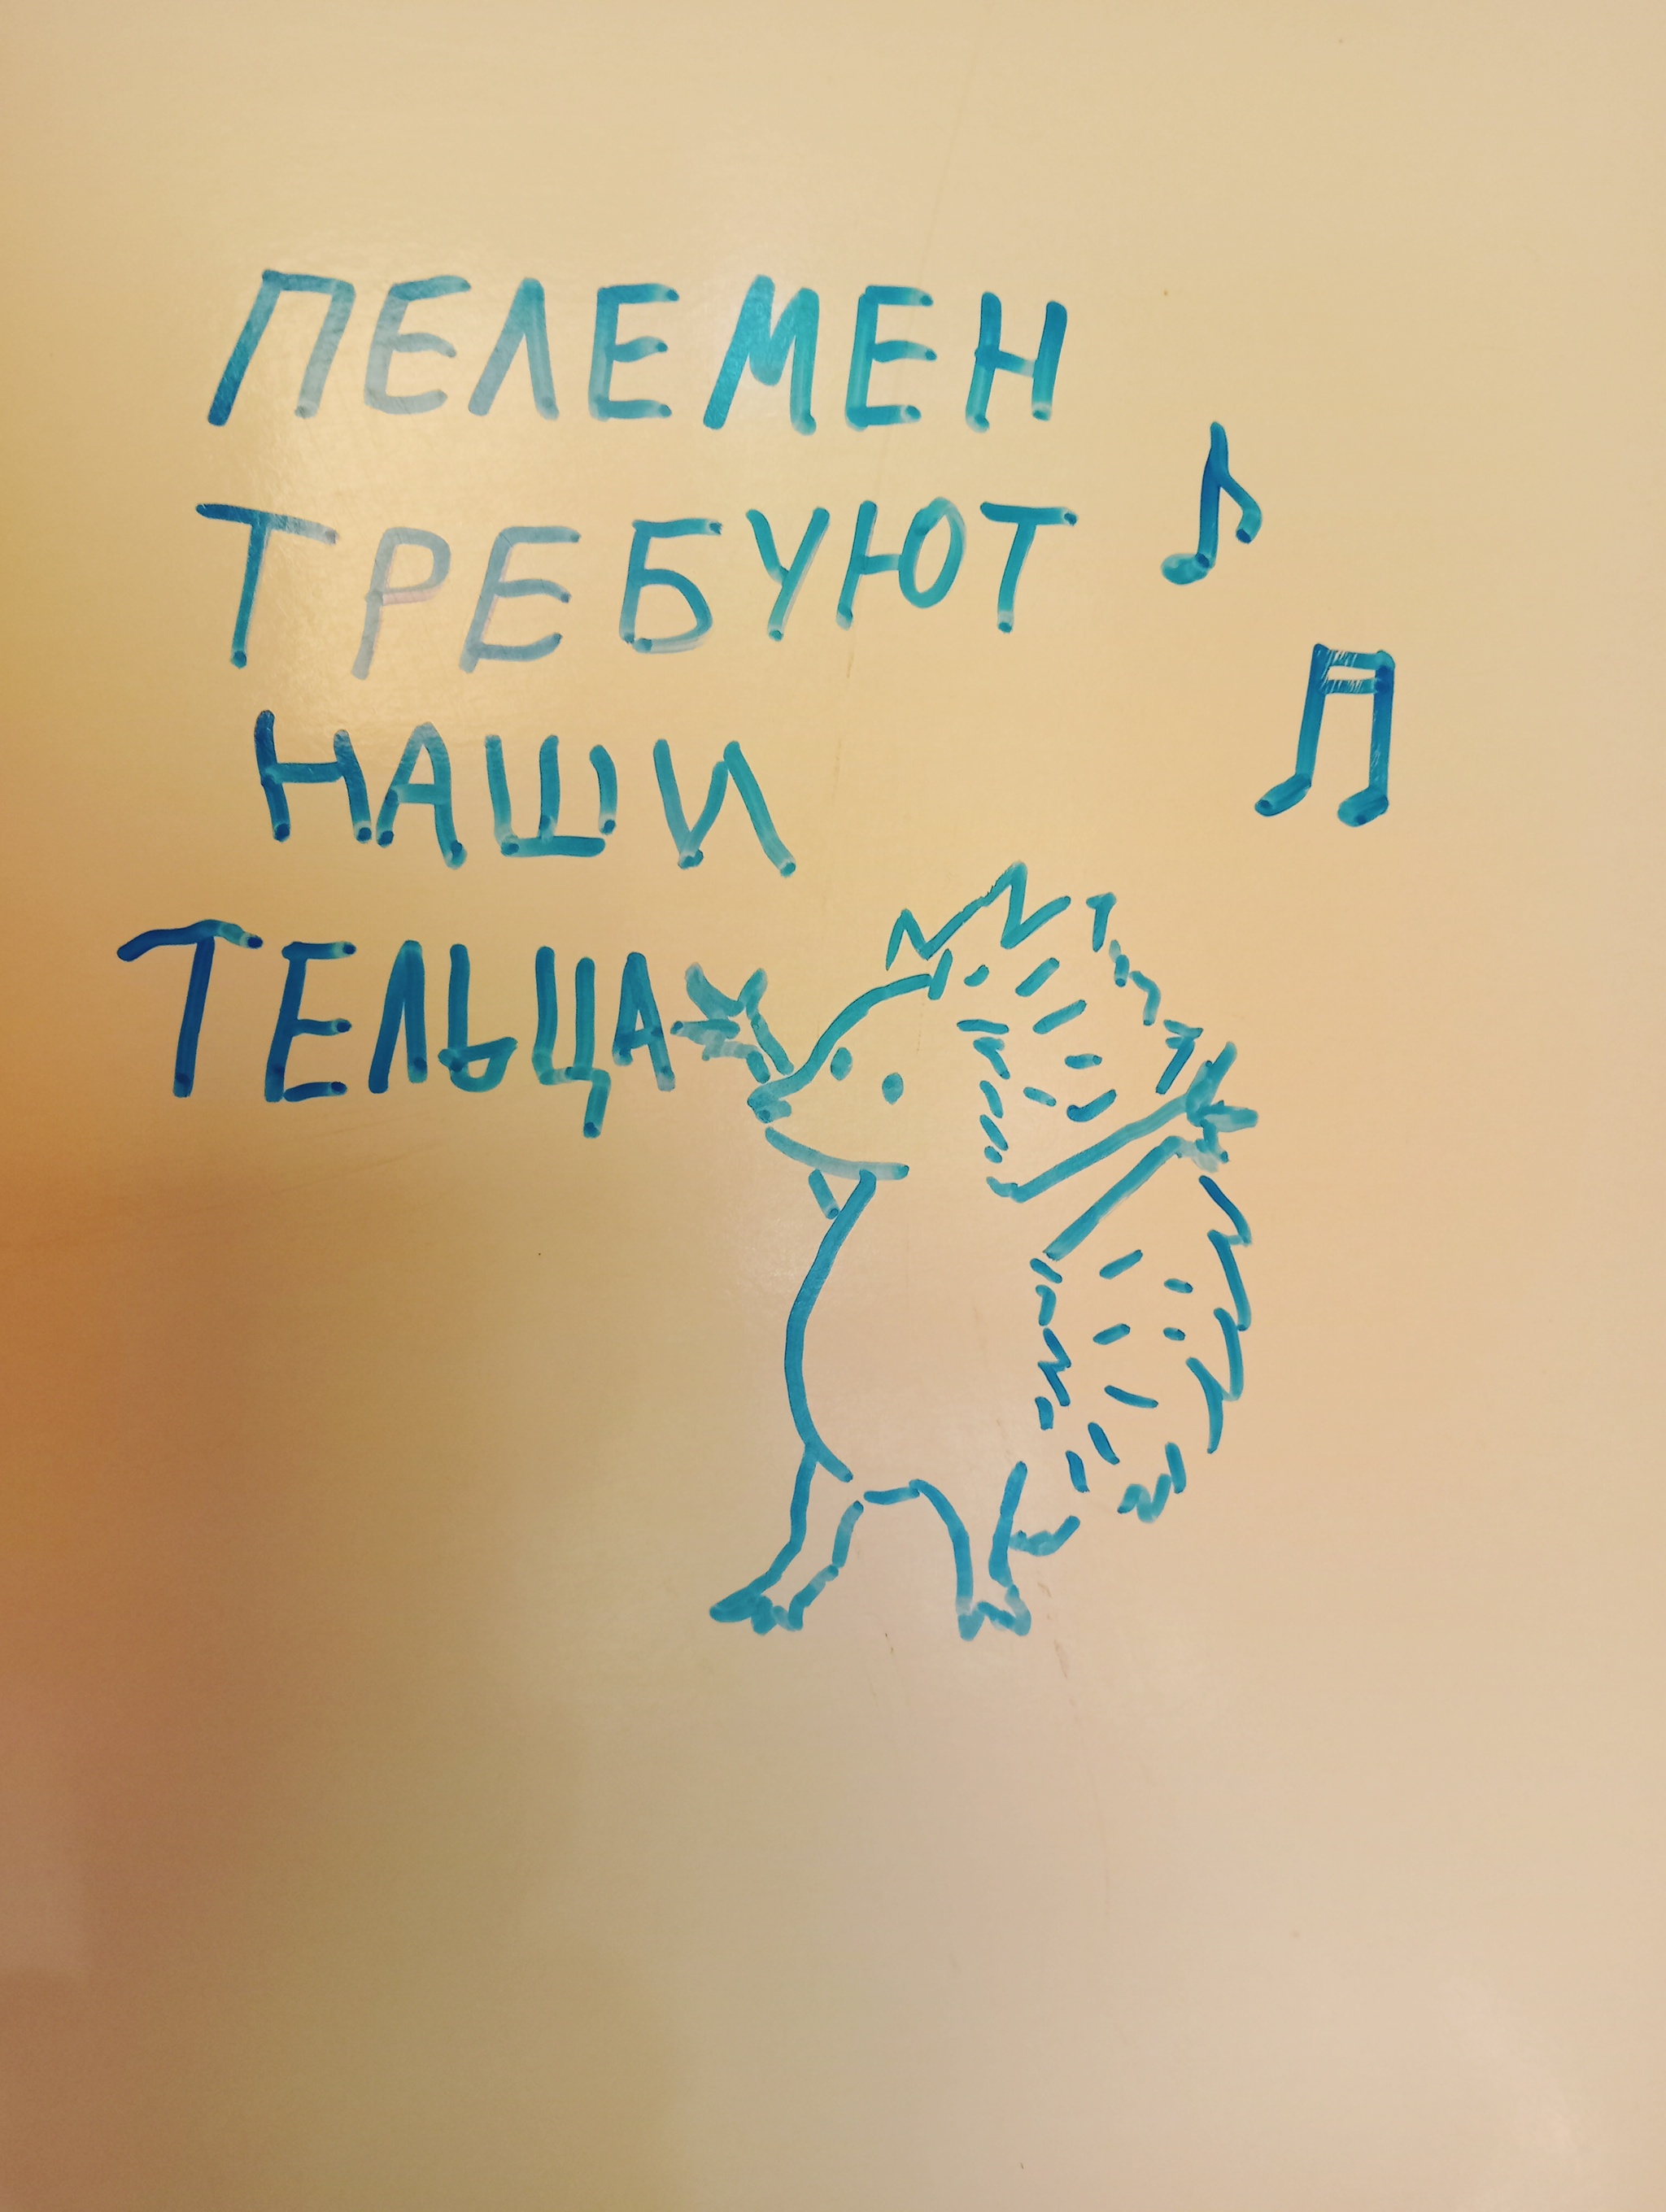 ПЕЛЕМЕН
ТРЕБУЮТ
НАШИ
ТЕЛЬЦА